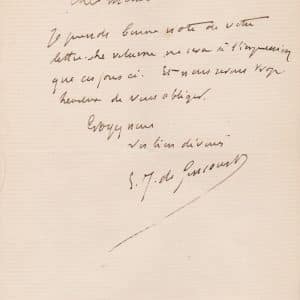 Je prends bonne note de votre
lettre. Le volume ne sera à l'impression
que ces jours ci. Et nous serons trop
heureux de vous obliger.
Croyez nous
vos bien dévoués
E. J. de Goncourt